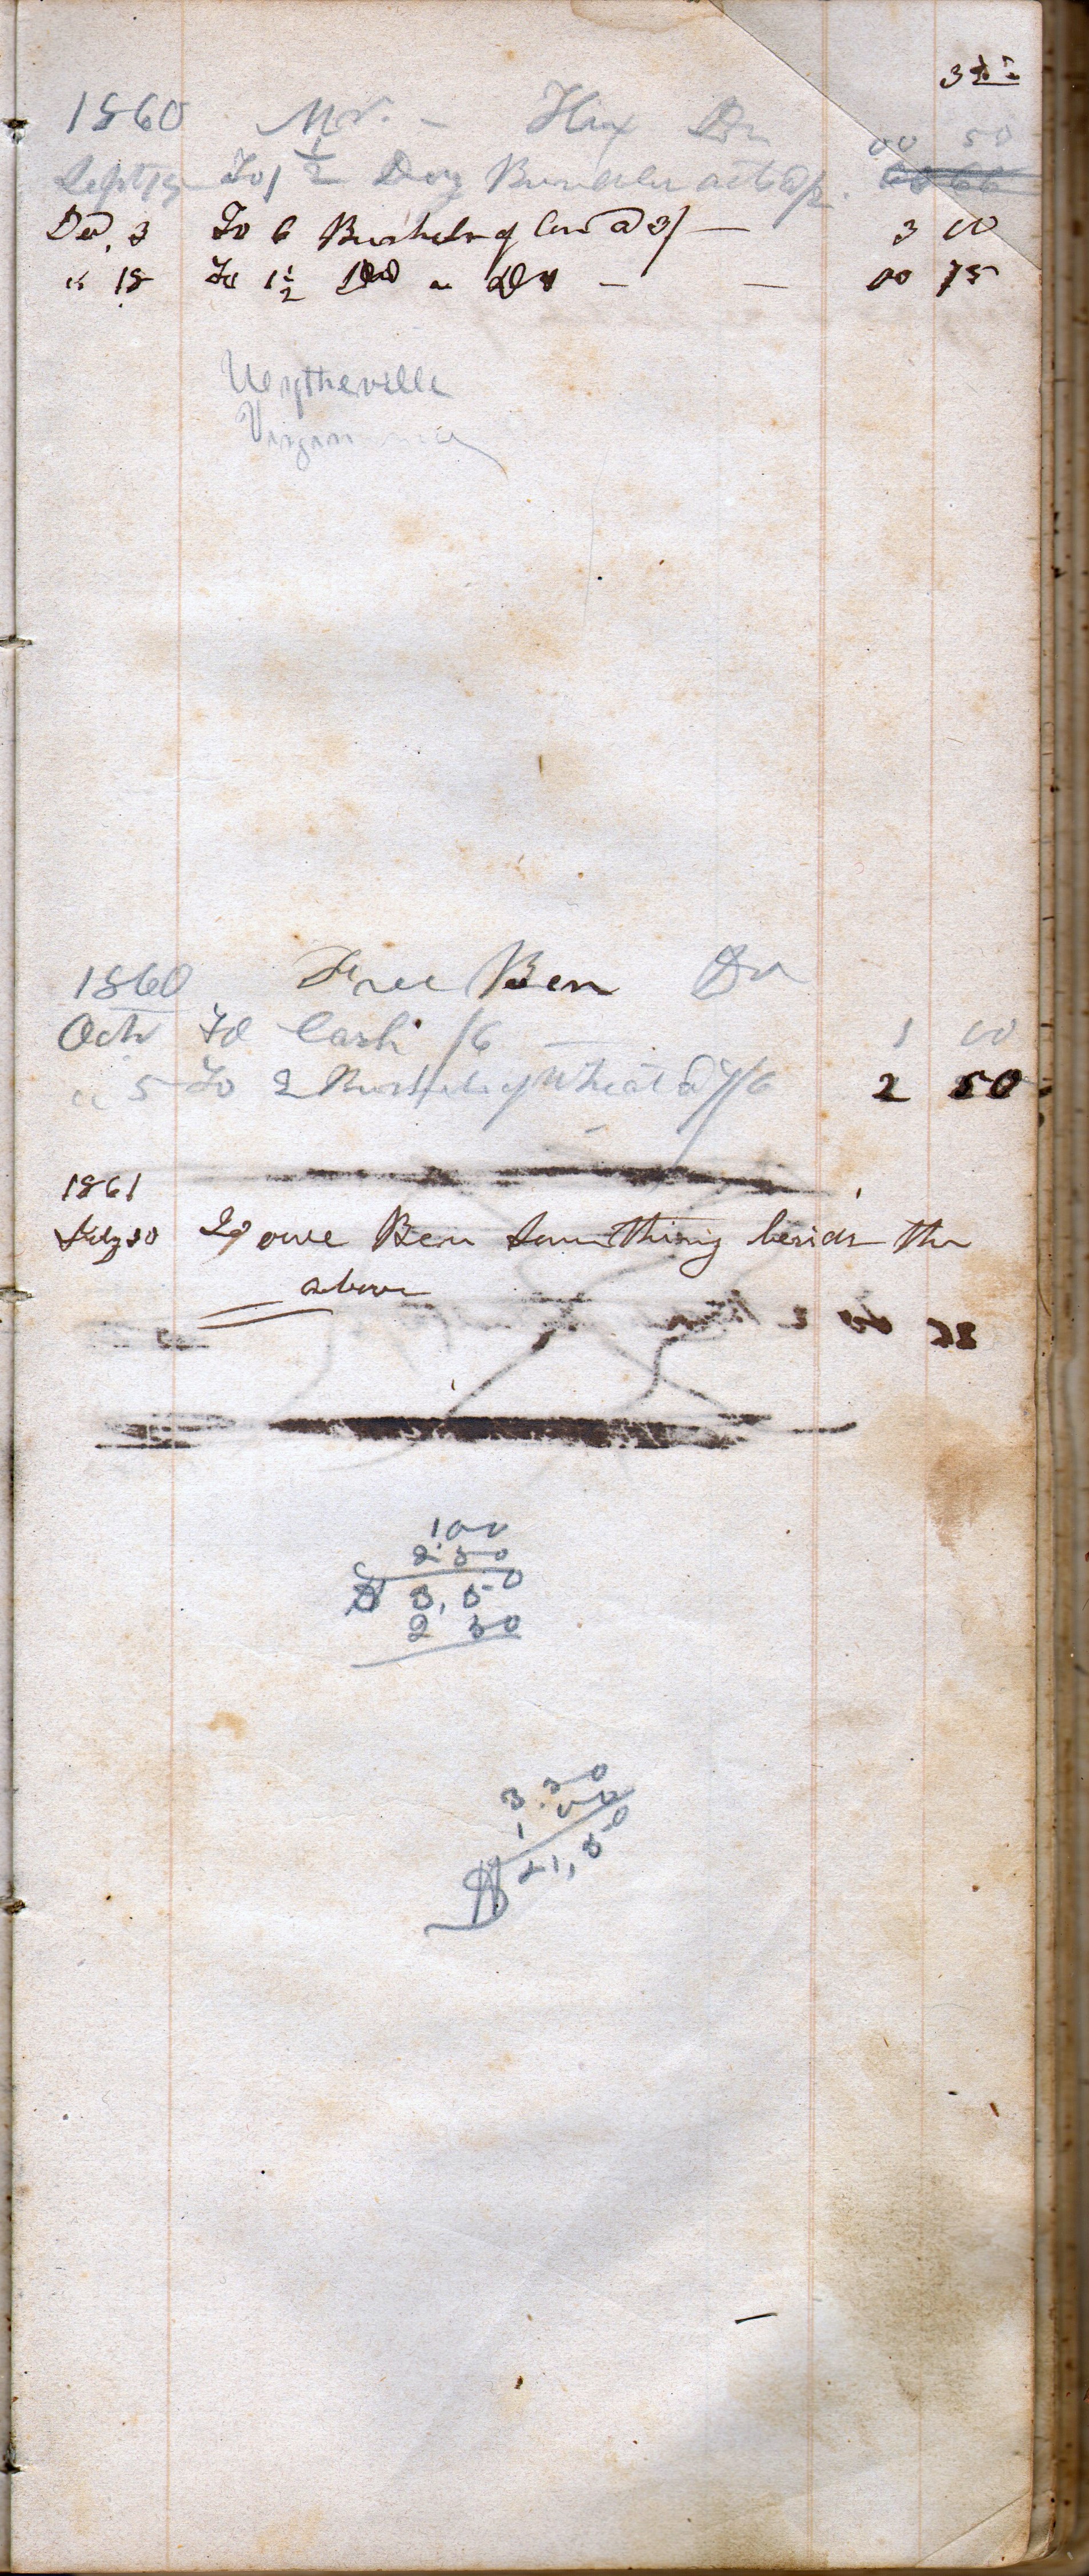 1860 Mr. - Hax Dr
00 50
Sept 15 To 1 1/2 Doz
Dec, 3 To 6 Bushels of Corn @ 3/ — 3 00
" 18 To 1 1/2 Do " Do — — 00 75
Wytheville
Virginia
1860 Free Ben Dr
Octr To Cash /6 — 1 00
" 5 To 2 Bushels of Wheat @ 7/6 2 50
1861
July 30 I owe Ben Something beside the
above
100
2.50
$ 3,50
2 50
3.50
1 00
$ 21,50